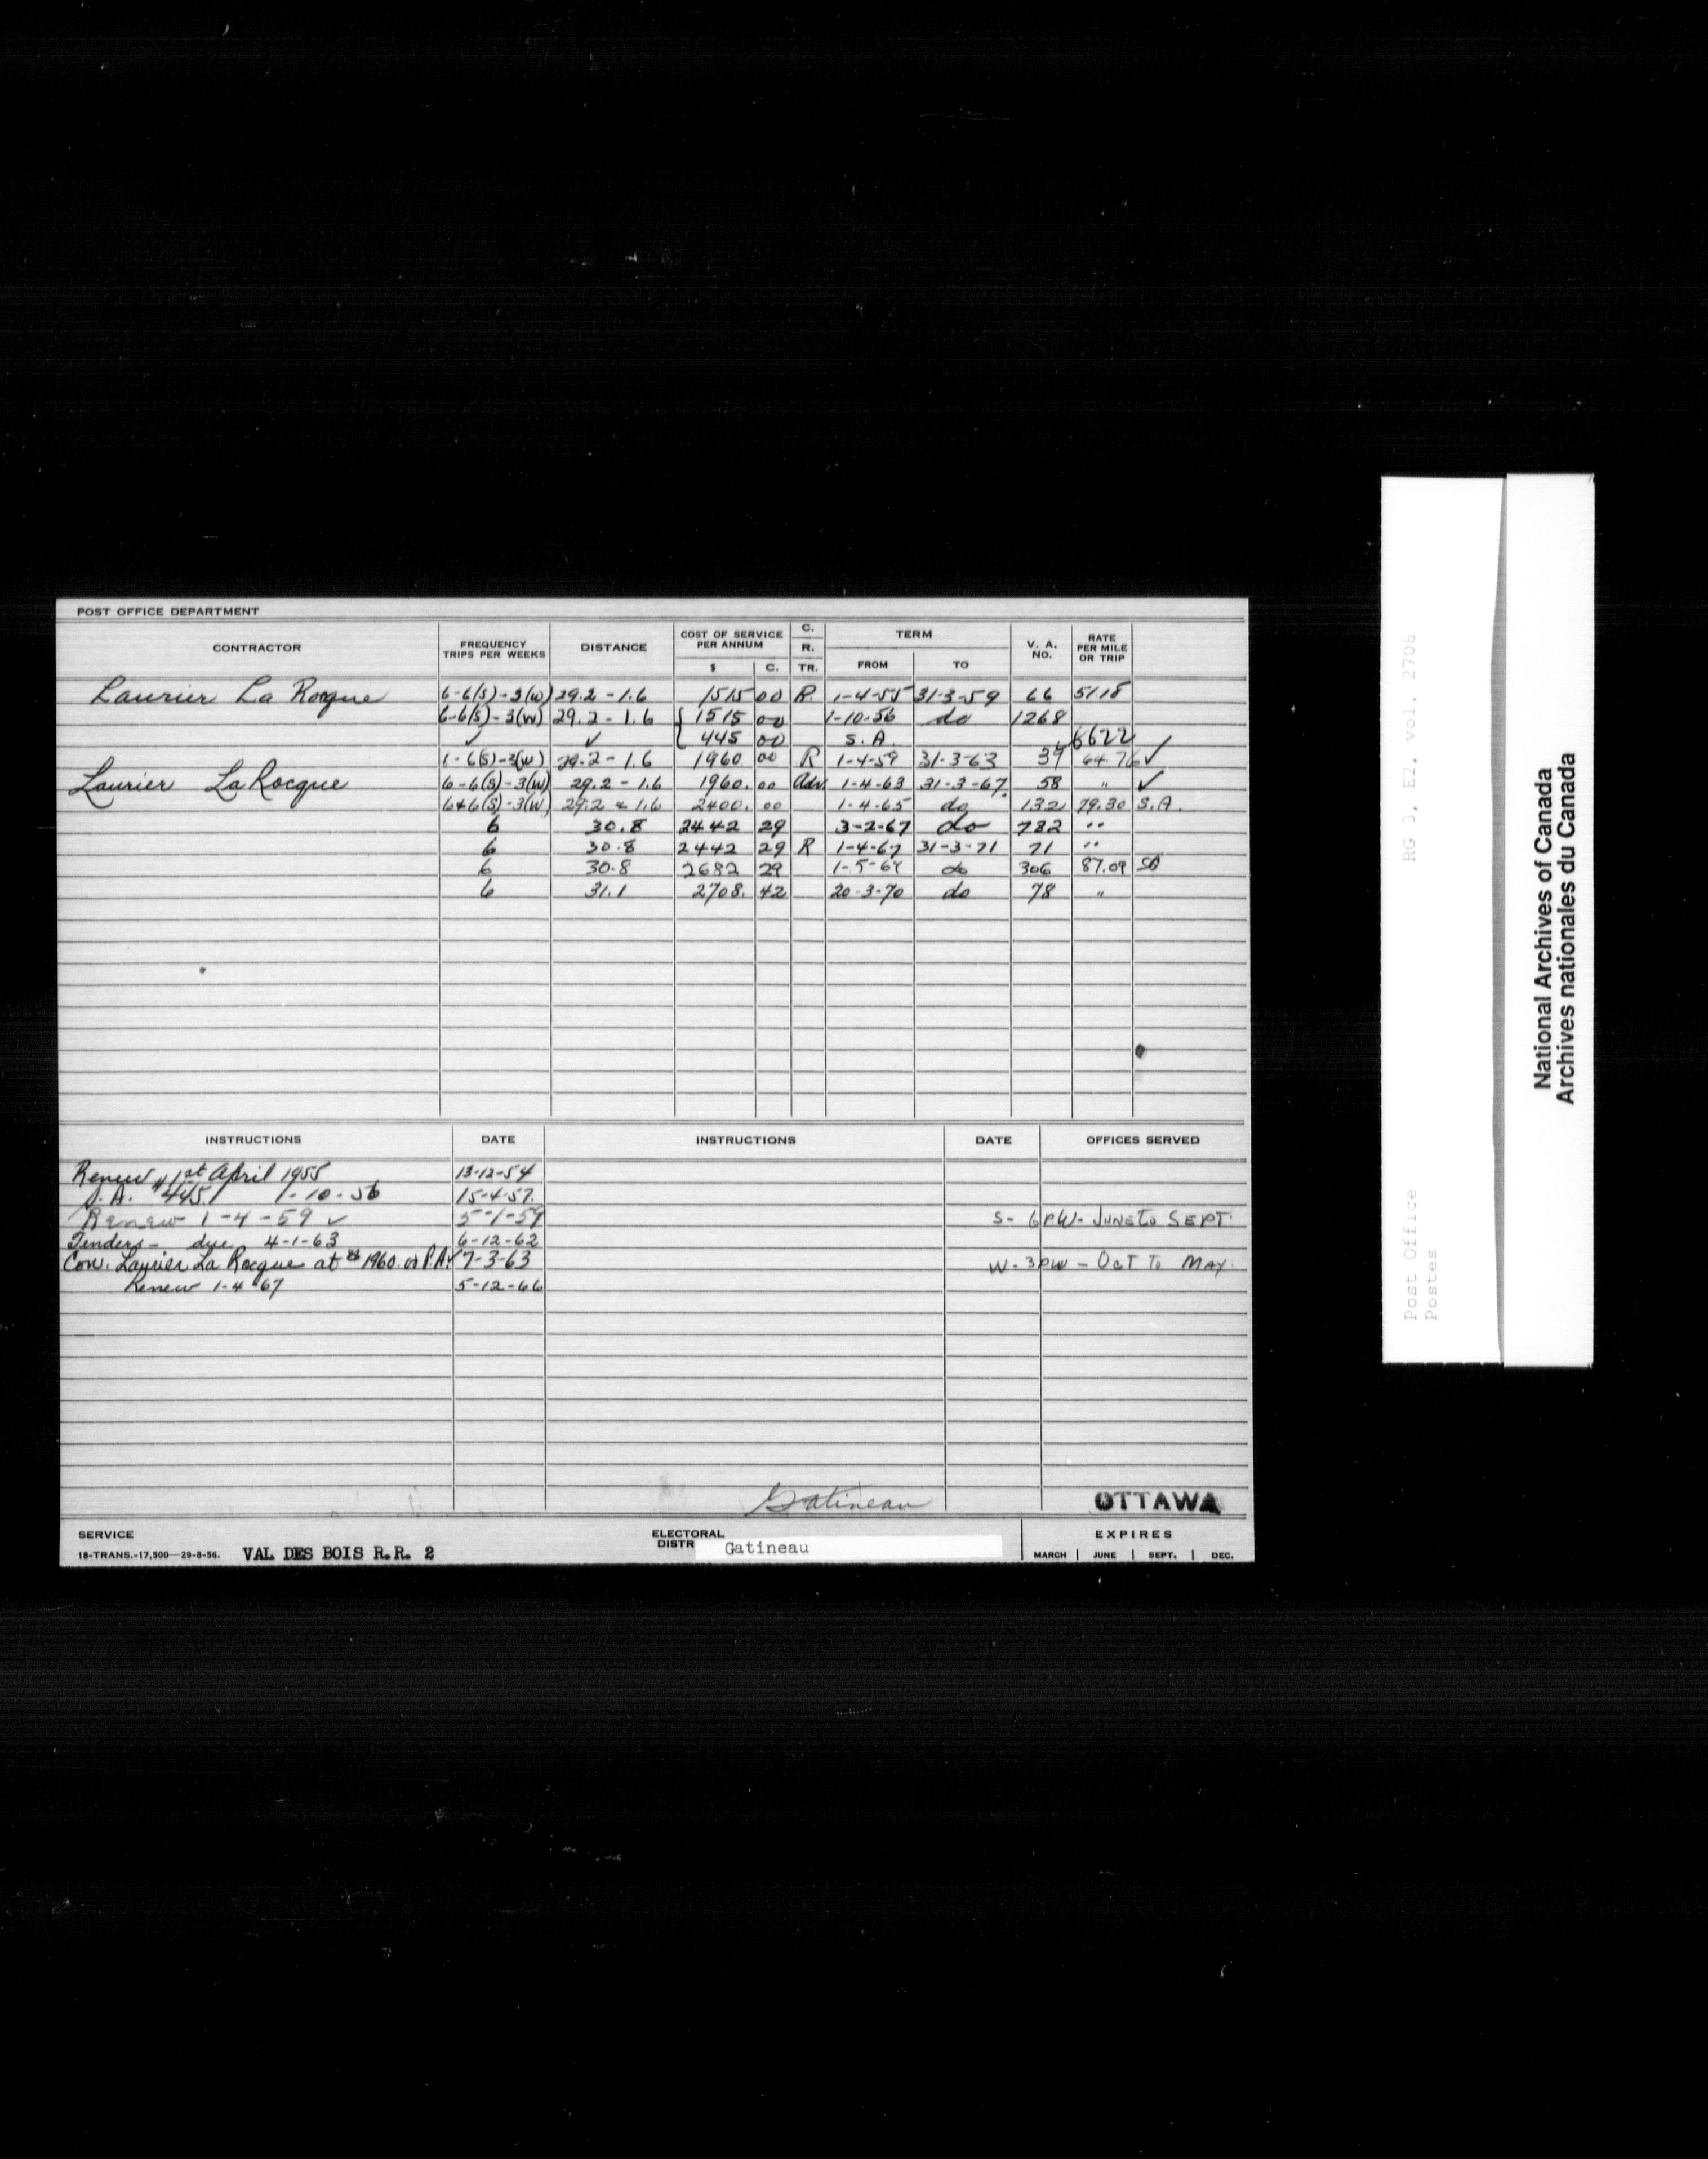 POST OFFICE DEPARTMENT
CONTRACTOR FREQUENCY TRIPS PER WEEKS DISTANCE COST OF SERVICE PER ANNUM $ C. C. R. TR. TERM FROM TO V. A. NO. RATE PER MILE OR TRIP
Laurier La Rocque 6-6(S)-3(W) 29.2 - 1.6 1515 00 R. 1-4-55 31-3-59 66 51.18
6-6(S)-3(W) 29.2 - 1.6 { 1515 00 1-10-56 do 1268
✓ ✓ { 445 00 S.A. 6622
1-6(S)-3(W) 29.2 - 1.6 1960 00 R 1-4-59 31-3-63 39 64.76 ✓
Laurier LaRocque 6-6(S)-3(W) 29.2 - 1.6 1960. 00 Adv. 1-4-63 31-3-67. 58 " ✓
6&6(S)-3(W) 29.2 & 1.6 2400. 00 1-4-65 do 132 79.30 S.A.
6 30.8 2442 29 3-2-67 do 782 "
6 30.8 2442 29 R 1-4-67 31-3-71 71 "
6 30.8 2682 29 1-5-69 do 306 87.09 SA
6 31.1 2708. 42 20-3-70 do 78 "
INSTRUCTIONS DATE INSTRUCTIONS DATE OFFICES SERVED
Renew 1st April 1955 13-12-54
S.A. $445/ 1-10-56 15-4-57.
Renew 1-4-59 ✓ 5-1-59 S- 6PW- JUNE TO SEPT.
Tenders - due 4-1-63 6-12-62
Con. Laurier La Rocque at $1960.00 P.A. ✓ 7-3-63 W-3PW - OCT TO MAY.
Renew 1-4-67 5-12-66
Gatineau OTTAWA
SERVICE ELECTORAL DISTR Gatineau EXPIRES
18-TRANS.-17,500—29-8-56. VAL DES BOIS R.R. 2 MARCH | JUNE | SEPT. | DEC.
Post Office RG 3, E2, vol. 2706
Postes
National Archives of Canada
Archives nationales du Canada